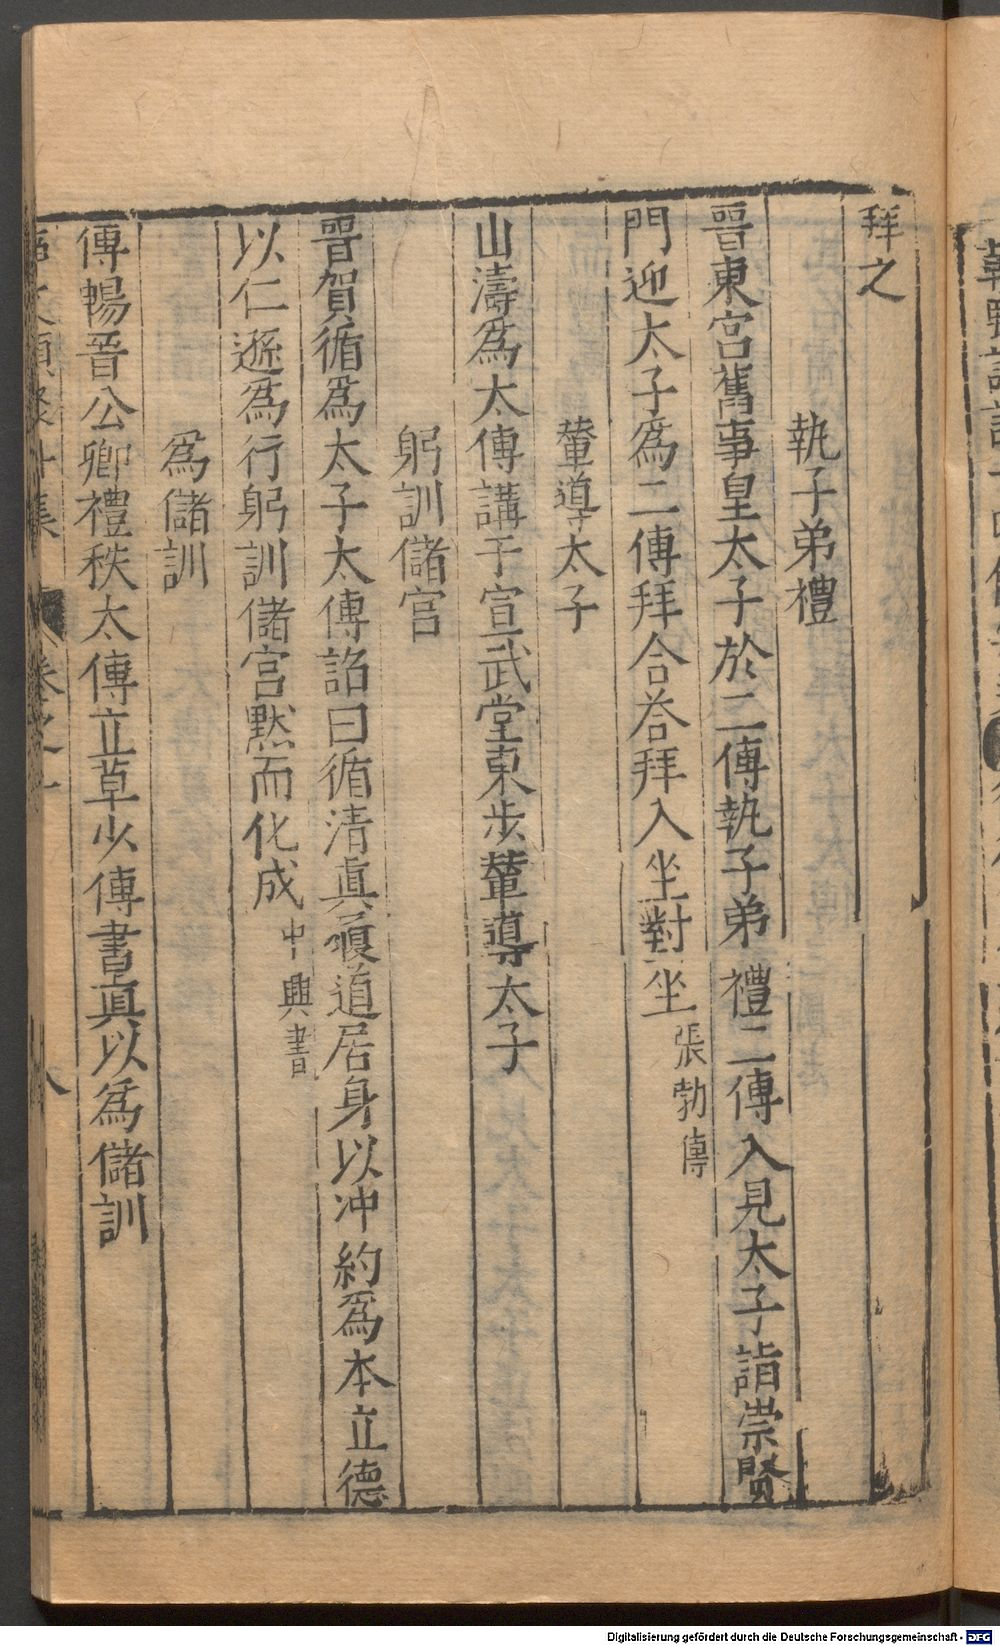 拜之
執子弟禮
晉東宮舊事皇太子於二傅執子弟禮二傅入見太子詣崇賢
門迎太子爲二傅拜合荅拜入坐對坐張勃傳
輦導太子
山濤爲太傅講于宣武堂東步輦導太子
躬訓儲宮
晉賀循爲太子太傅詔曰循清眞履道居身以冲約爲本立德
以仁遜爲行躬訓儲宮黙而化成中興書
爲儲訓
傅暢晉公卿禮秩太傅立草少傅書眞以爲儲訓
Digitalisierung gefördert durch die Deutsche Forschungsgemeinschaft - DFG